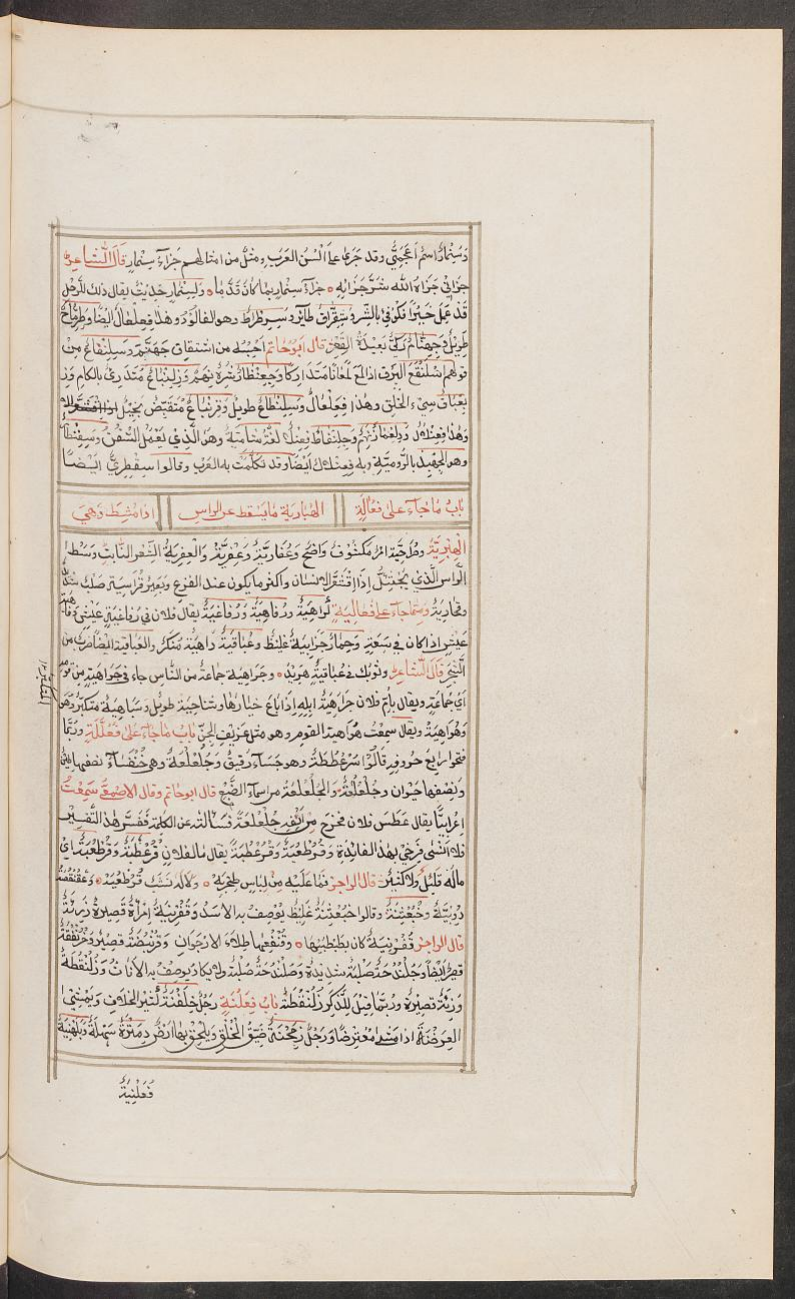 وسنمار اسم أعجمي وقد جرى على ألسن العرب ومثل من امثالهم جزاء سنمار قال الشاعر
جزاني جزاه الله شر جزائه جزاء سنمار بما كان قدما ولسنمار حديث يقال ذلك للرجل
قد عمل خيرا فكوفئ بالشر وسقراق طاير وسرطراط وهو الفالوذ وهذا فعلعال ايضا وطرماح
طويل وجهنام ركي بعيدة القعر قال ابو حاتم احسبه من اشتقاق جهنم وسلنقاع من
قولهم اسلنقع البرق اذا لمع لمعانا متداركا وجعنظار شره نهم وزلنباع متدرئ بالكلام
بعباق سيء الخلق وهذا فعلعال وسلنطاع طويل وقرنباع متقبض بخيل
وهذا فعنلال وجلنفاط فعنلال لغة شامية وهو الذي يعمل السفن وسفنطار
وهو الجهبذ بالرومية وبه فعنلال ايضا وقد تكلمت به العرب وقالوا سقطري ايضا
باب ما جاء على فعالة الهبارية ما يسقط عن الراس اذا مشط وهي
الهبرية امر مكشوف واضح وعفارية وعفرية والعفرية الشعر النابت وسط
الراس الذي يجثئل اذا اقشعر الانسان واكثر ما يكون عند الفزع وبعير قراسية صلب شديد
وقحارية ومما جاء على فعالية كراهية ورفاهية ورفاغية يقال فلان في رفاغية عيش ورفاهية
عيش اذا كان في سعة وحمار حزابية غليظ وعباقية داهية منكر والعباقية ايضا ضرب من
الشجر قال الشاعر وثوبك في عباقية هريد وجراهية جماعة من الناس جاء في جراهية من قومه
اي جماعة ويقال باع فلان جراهية ابله اذا باع خيارها وشناحية طويل وسباهية متكبر وهو
وهواهية ويقال سمعت هواهية القوم وهو مثل عزيف الجن باب ما جاء على فعللة وربما
فتحوا رابع حروفه قالوا سرعططة وهو حساء رقيق وجلعلعة وهي خنفساء نصفها طين
ونصفها حيوان وجلعلعة والجلعلعة من اسماء الضبع قال ابو حاتم وقال الاصمعي سمعت
اعرابيا يقال عطس فلان فخرج من انفه جلعلعة فسألته عن الكلمة ففسر هذا التفسير
فلا انسى فرحي بهذه الفايدة وقرطعبة وقرعطبة يقال ما لفلان قرعطبة وقرطعبة اي
ماله قليل ولا كثير قال الراجز فما عليه من لباس طحربه وماله من نشب قرطعبه وعقنقصة
دويبة وخبعثنة وقالوا خبعثنة غليظ يوصف به الاسد وقفرنية امراة قصيرة زرية
قال الراجز قفرنية كان بطبطبيها وقنفعها طلاء الارجوان وقرنبضة قصيرة وخرنقفة
قصير ايضا وجلندحة صلبة شديدة وصلندحة صلبة ولا يكاد يوصف به الا الاناث وزلنقطة
وزية قصيرة وربما قيل للذكور زلنقطة باب فعلنة رجل خلفنة كثير الخلاف ويمشي
العرضنة اذا مشى معترضا ورجل زمحنة ضيق الخلق ويلحق بهما ارض دمثرة سهلة وبلهنية
فعلنية